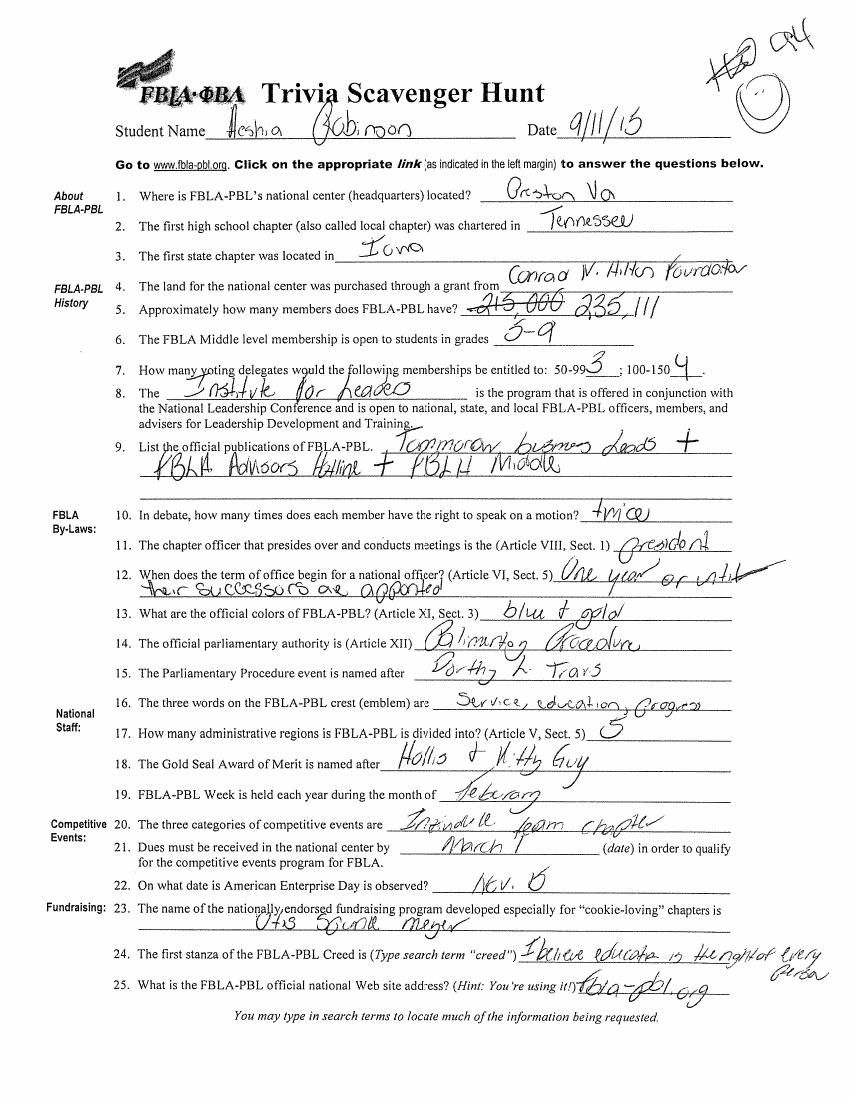 94
FBLA-ΦBA Trivia Scavenger Hunt
Student Name Heshia Robinson Date 9/11/15
Go to www.fbla-pbl.org. Click on the appropriate link (as indicated in the left margin) to answer the questions below.
About FBLA-PBL
1. Where is FBLA-PBL's national center (headquarters) located? Reston Va
2. The first high school chapter (also called local chapter) was chartered in Tennessee
3. The first state chapter was located in Iowa
FBLA-PBL History
4. The land for the national center was purchased through a grant from Conrad N. Hilton Foundation
5. Approximately how many members does FBLA-PBL have? 215,000 235,111
6. The FBLA Middle level membership is open to students in grades 5-9
7. How many voting delegates would the following memberships be entitled to: 50-99 3 ; 100-150 4 .
8. The Institute for Leaders is the program that is offered in conjunction with
the National Leadership Conference and is open to national, state, and local FBLA-PBL officers, members, and
advisers for Leadership Development and Training.
9. List the official publications of FBLA-PBL. Tommorow business Leads +
FBLA Advisors Hotline + FBLA Middle
FBLA By-Laws:
10. In debate, how many times does each member have the right to speak on a motion? twice
11. The chapter officer that presides over and conducts meetings is the (Article VIII, Sect. 1) president
12. When does the term of office begin for a national officer? (Article VI, Sect. 5) One year or until
their successors are appointed
13. What are the official colors of FBLA-PBL? (Article XI, Sect. 3) blue + gold
14. The official parliamentary authority is (Article XII) Procedure
15. The Parliamentary Procedure event is named after Dorthy L Travs
16. The three words on the FBLA-PBL crest (emblem) are Service, education, progress
National Staff:
17. How many administrative regions is FBLA-PBL is divided into? (Article V, Sect. 5) 5
18. The Gold Seal Award of Merit is named after Hollis + Kitty Guy
19. FBLA-PBL Week is held each year during the month of February
Competitive Events:
20. The three categories of competitive events are team chapter
21. Dues must be received in the national center by March 1 (date) in order to qualify
for the competitive events program for FBLA.
22. On what date is American Enterprise Day is observed? Nov. 15
Fundraising:
23. The name of the nationally endorsed fundraising program developed especially for "cookie-loving" chapters is
Otis Spunk meyer
24. The first stanza of the FBLA-PBL Creed is (Type search term "creed") I believe education is the right of every
person
25. What is the FBLA-PBL official national Web site address? (Hint: You're using it!) fbla-pbl.org
You may type in search terms to locate much of the information being requested.